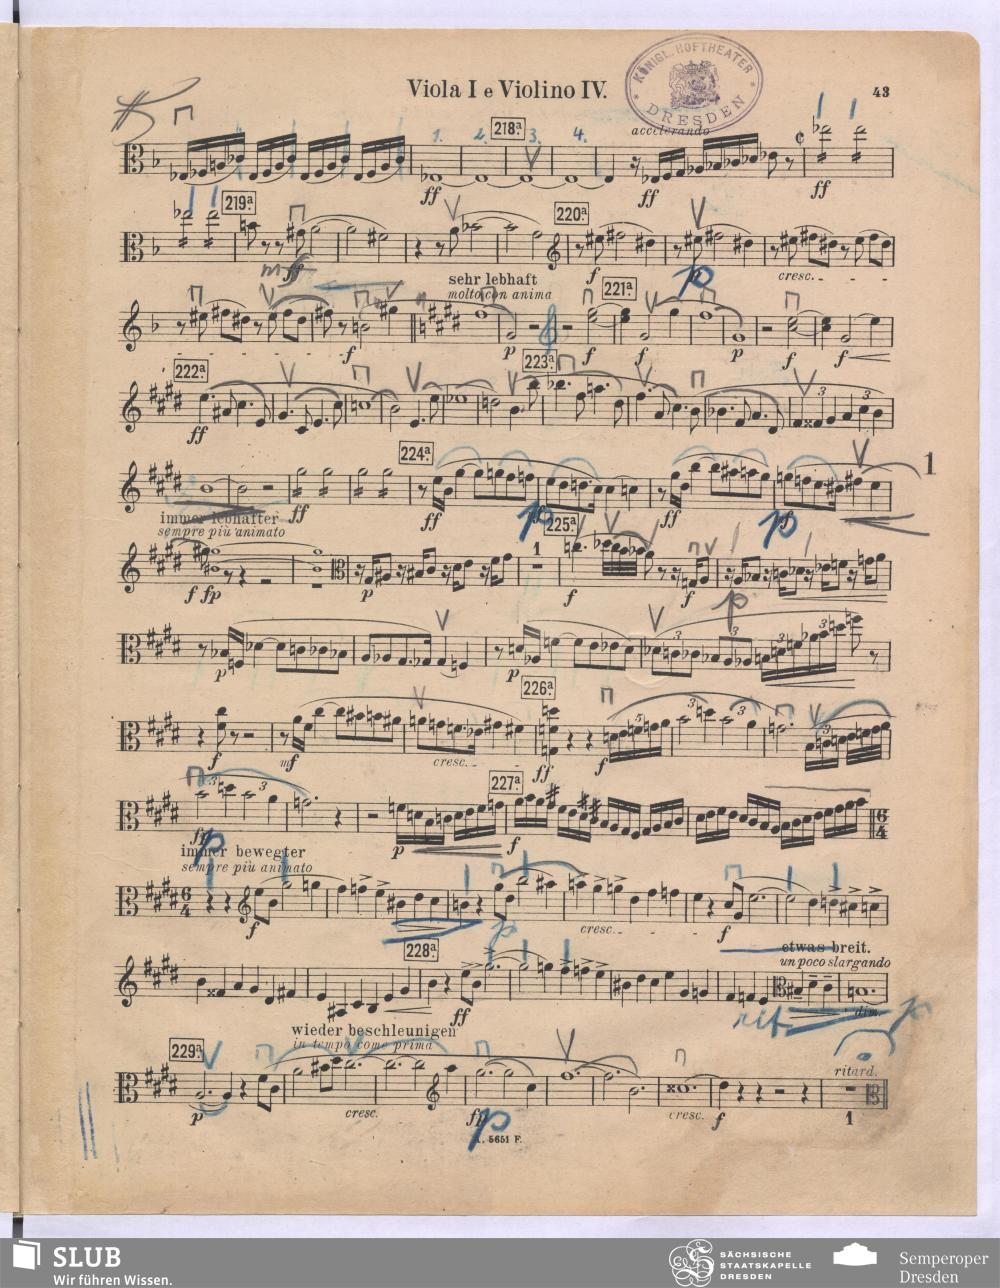 KÖNIGL. HOFTHEATER
* DRESDEN *
Viola I e Violino IV.
43
1. 2. 218ª 3. 4.
accelerando
ff ff ff
219ª 220ª
mff f p cresc.
sehr lebhaft
molto con anima
221ª
f p f f p f f
222ª 223ª
ff 3 3
224ª
1
ff ff p ff p
immer lebhafter
sempre più animato
225ª
1
f fp p f f p
p p 3 3
226ª
5 3 3
f mf cresc. ff f
227ª
3 3
p p f
immer bewegter
sempre più animato
6/4
f p cresc. f
228ª
etwas breit.
un poco slargando
ff rit dim. p
229ª
wieder beschleunigen
in tempo come prima
ritard.
p cresc. p cresc. f 1
A. 5651 F.
SLUB
Wir führen Wissen.
SÄCHSISCHE
STAATSKAPELLE
DRESDEN
Semperoper
Dresden